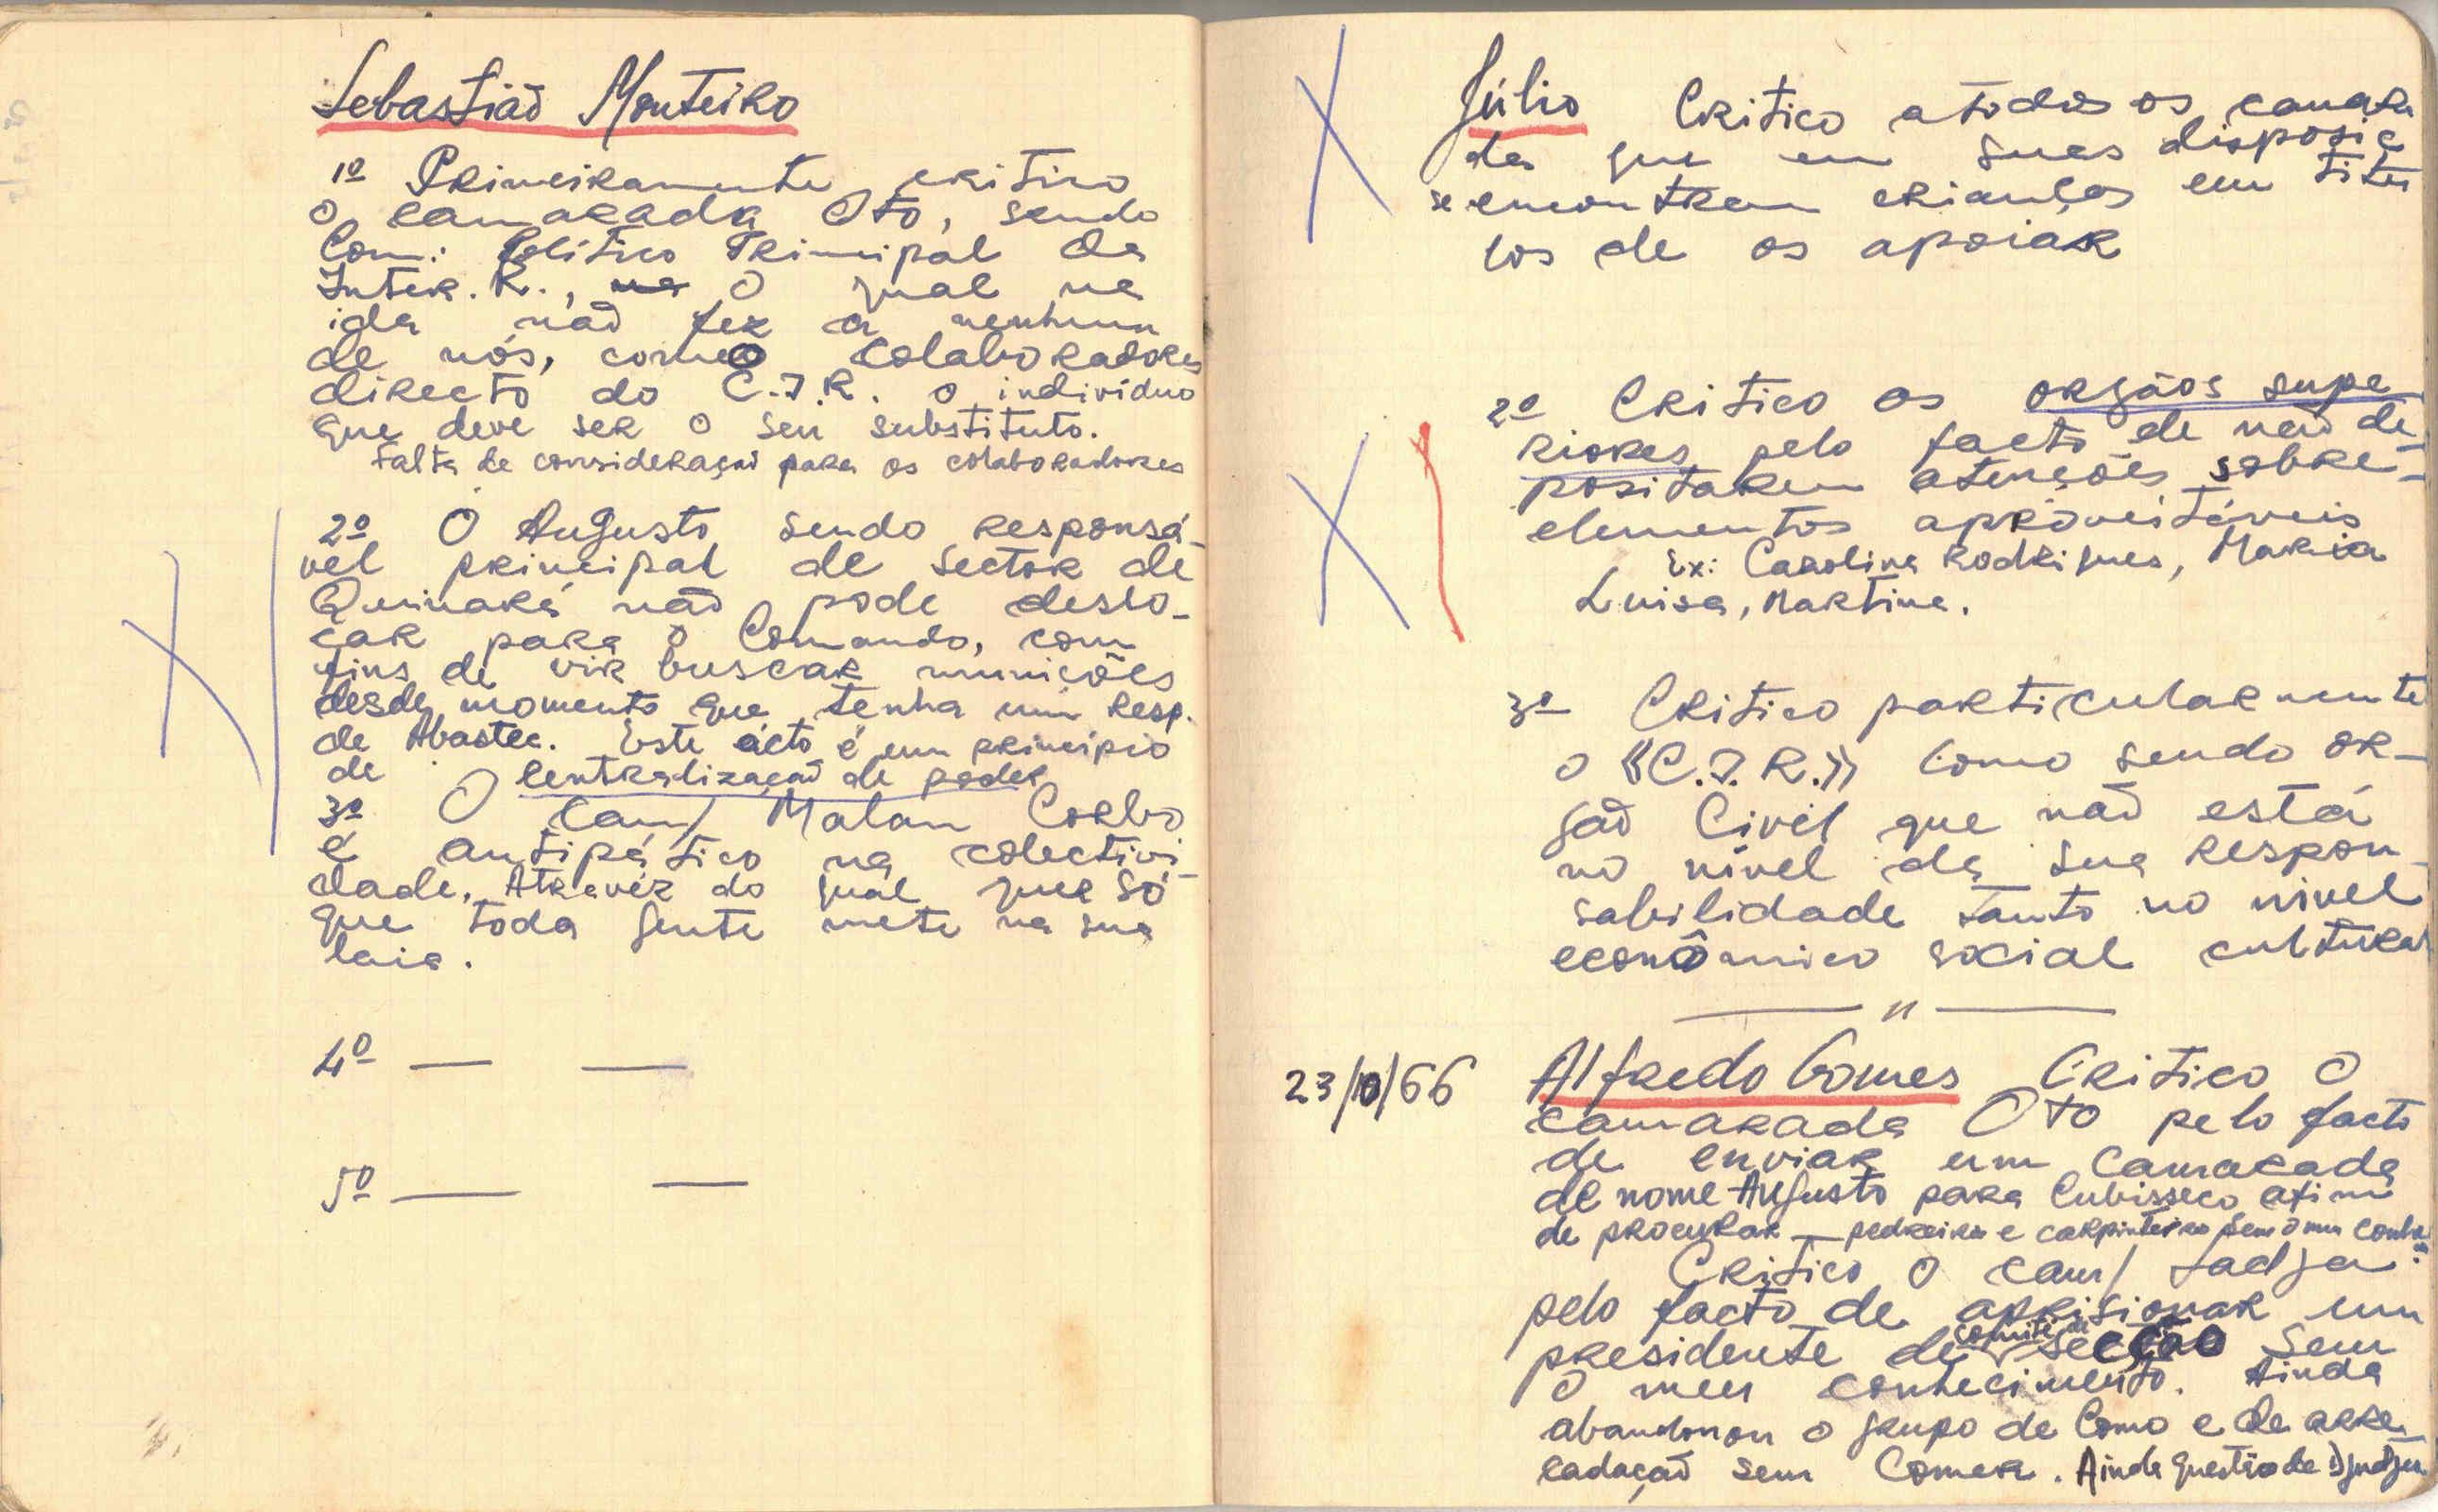 Sebastião Monteiro
1º Primeiramente critico
o camarada Oto, sendo
Com: Político Principal da
Inter. R., na o qual na
ida não fez a nenhum
de nós, como colaboradores
directo do C.I.R. o indivíduo
que deve ser o seu substituto.
Falta de consideração para os colaboradores
2º O Augusto sendo responsá-
vel principal de sector de
Quinará não pode deslo-
car para o Comando, com
fins de vir buscar munições
desde momento que tenha um resp.
de Abastec. Este acto é um princípio
de centralização de poder
3º O cam/ Malam Corbo
é antipático na colectivi-
dade. Atravéz do qual quer só
que toda gente mete na sua
laia.
4º — —
5º — —
Júlio Critico a todos os camara
das que em suas disposiç
se encontram crianças em títu
los de os apoiar
2º Critico os orgãos supe-
riores pelo facto de não de-
positarem atenções sobre-
elementos aproveitáveis
Ex: Carolina Rodrigues, Maria
Luisa, Martina.
3º Critico particularmente
o «C.I.R.» como sendo or-
gão Civil que não está
no nível da sua respon-
sabilidade tanto no nivel
económico social cultural
— " —
23/10/66 Alfredo Gomes Critico o
camarada Oto pelo facto
de enviar um camarada
de nome Augusto para Cubisseco afim
de procurar — pedreiro e carpinteiro sem o meu
Critico o cam/ Fadja
pelo facto de aprisionar um
presidente de comité de secção sem
o meu conhecimento. Ainda
abandonou o grupo de Como e de arre-
cadação sem comer. Ainda questão de